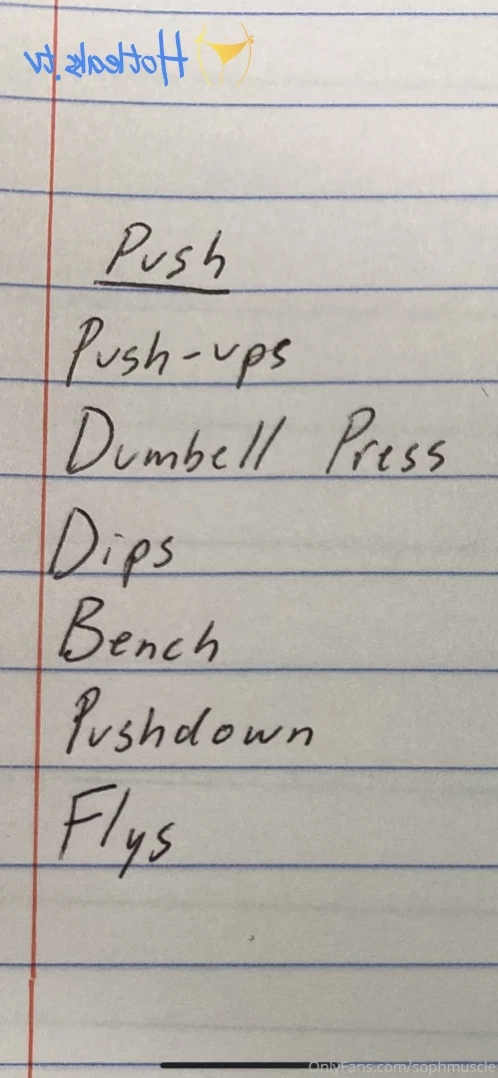 Hotleaks.tv
Push
Push-ups
Dumbell Press
Dips
Bench
Pushdown
Flys
OnlyFans.com/sophmuscle